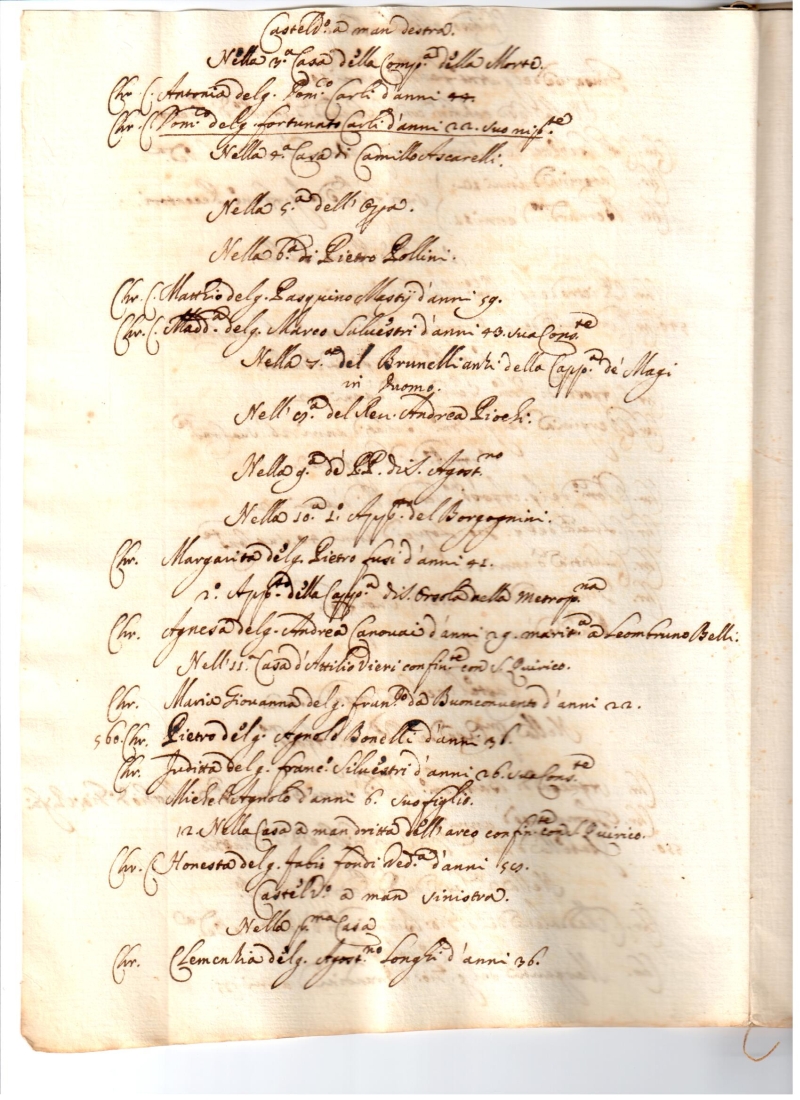 Casteld.o a man destra.
Nella 3.a Casa della Comp.a della Morte.
Chr. C. Antonia del q. Dom.co Carli d'anni 44.
Chr. C. Dom.co del q. fortunato Carli d'anni 22. suo nip.te
Nella 4.a Casa di Camillo Ascarelli.
Nella 5.a dell'
Nella 6.a di Pietro Pollini.
Chr. C. Matthio del q. Pasquino Mastij d'anni 59.
Chr. C. Madd.a del q. Marco Saluestri d'anni 43. sua Cons.te
Nella 7.a del della Capp.a de' Magi
in Duomo.
Nell' 8.a del Reu. Andrea Piochi.
Nella 9.a de' PP. di S. Agost.no
Nella 10.a 1.o App.to del Borgognini.
Chr. Margarita del q. Pietro fusi d'anni 41.
2.o App.to della Capp.a di S. Orsola nella Metrop.na
Chr. Agnesa del q. Andrea Canouai d'anni 29. marit.a a Leombruno Belli.
Nell' 11. Casa d'Attilio Vieri confin.te con S. Quirico.
Chr. Maria Giouanna del q. fran.co da Buonconuento d'anni 22.
560. Chr. Pietro del q. Agnolo Bonelli d'anni 36.
Chr. Juditta del q. franc.o Siluestri d'anni 26. sua Cons.te
Michel Agnolo d'anni 6. suo figlio.
12. Nella Casa a man dritta dell' arco confin.te con S. Quirico.
Chr. C. Honesta del q. fabio fondi Ved.a d'anni 58.
Casteld.o a man sinistra.
Nella p.ma Casa
Chr. Clementia del q. Agost.no Longhi d'anni 36.